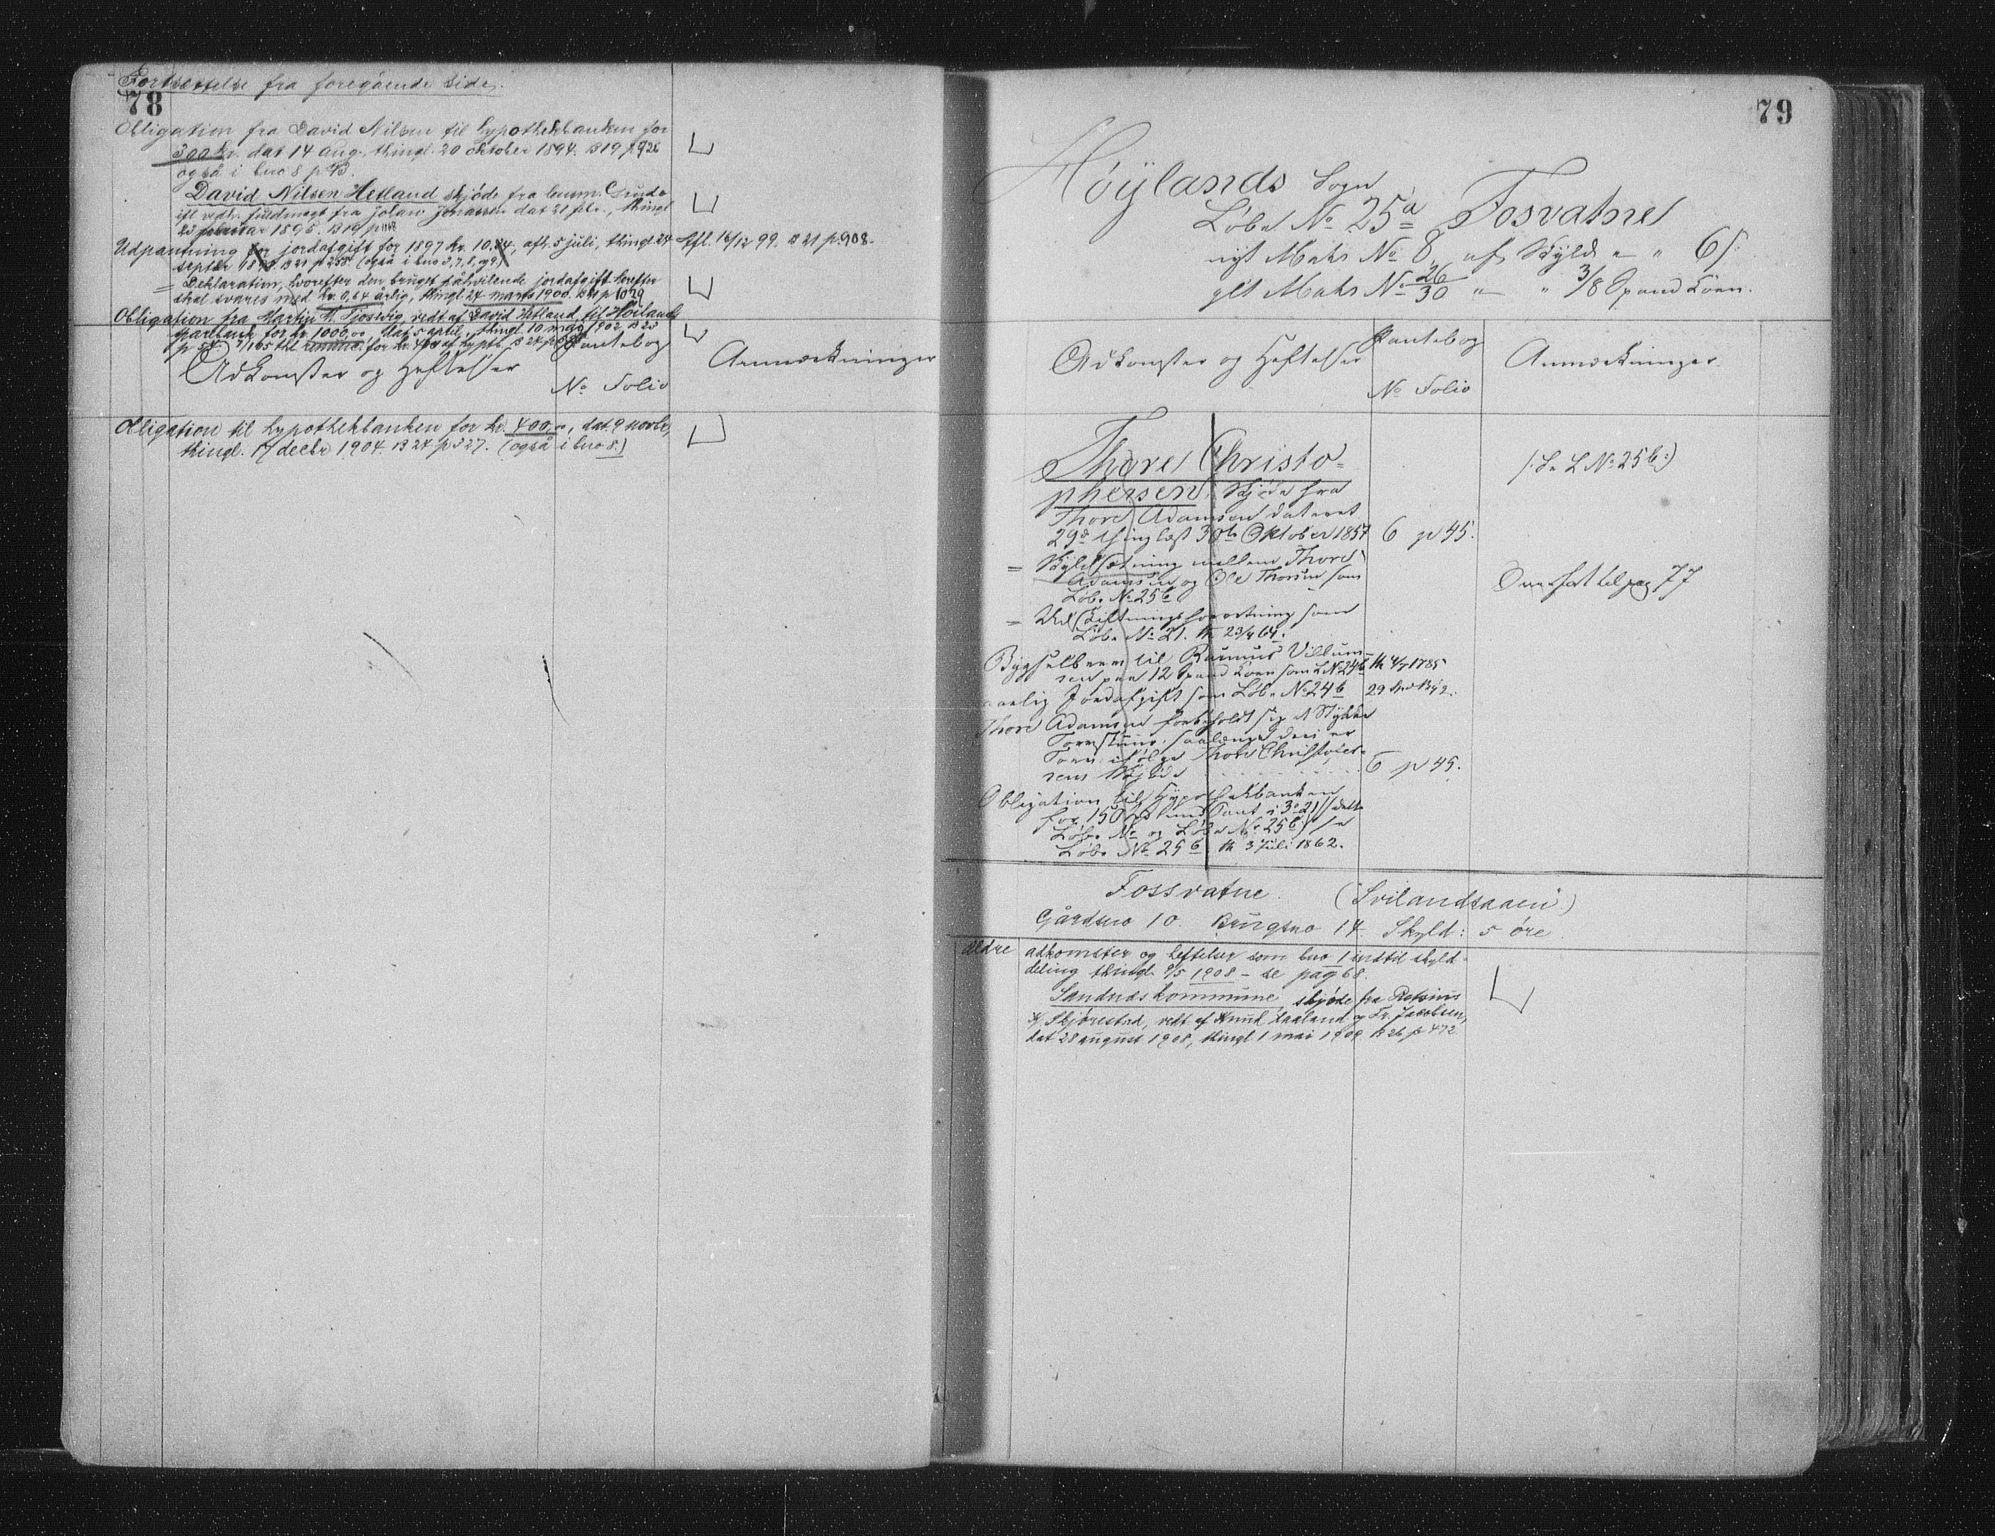 Fortsættelse fra foregående side.
78
Obligation fra David Nilsen til hypothekbanken for
300 kr. dat 14 aug., thingl. 20 oktober 1894. B 19 p 926
også i bno 8 p 43.
David Nilsen Hetland skjøde fra
ifl vedh. fuldmagt fra Jonassen dat 21 febr., thingl
23 februar 1895. B 19 p
Udpantning for jordafgift for 1897 kr. 10.44, afh. 5 juli, thingl 24 Afl. 16/12 99. B 21 p 908.
septbr 1898 B 21 p 255 (også i bno 3, 7, 8, og 9)
= Deklaration, hvorefter den bruget påhvilende jordafgift herefter
skal svares med kr. 0,64 årlig, thingl 24 marts 1900. B 21 p 1029
Obligation fra Martin T. Tjosevig vedt af David Hetland til Høilands
sparbank for kr. 1000,00 dat 5 april, thingl 10 mai 1902 B 23
Adkomster og Heftelser
Pantebog
No Folio
Anmærkninger
Obligation til hypothekbanken for kr. 400,00, dat 9 novbr,
thingl. 17 decbr 1904. B 24 p 527. (også i bno 8.)
79
Høylands Sogn
Løbe No 25a Fosvatne
nyt Matr No 8, af Skyld " " 6 ß:
glt Matr No 26/30 " " 3/8 Spand Korn.
Adkomster og Heftelser
Pantebog
No Folio
Anmærkninger.
Thore Christo=
phersen, Skjøde fra
Thore Adamsen dateret
29de thinglæst 30te Oktober 1857 6 p 45.
(: Se L No 25b:)
= Skyldsætning mellem Thore
Adamsen og Ole Thorsen som
Løbe No 25b
Overført til pag 77
= Udskiftningsforretning som
Løbe No 21. th 23/4 64.
Bygselbrev til Rasmus Villum=
sen paa 12 Spand Korn som L No 24b th 4/7 1785
aarlig Jordafgift som Løbe No 24b
Thore Adamsen forbeholdt sig et Stykke
Torvskjær saalænge deri er
Torv ifølge Thore Christofer=
sens Skjøde . . . . . . . 6 p 45.
Obligation til Hypothekbanken
for 150 Spd mod Pant i dette
Løbe No og Løbe No 25b se
Løbe No 25b th 3 Juli 1862.
Fossvatne. (Svilandsaaen.)
Gårdsno 10. Brugsno 14 Skyld: 5 øre.
Ældre adkomster og heftelser som bno 1 indtil skyld=
deling thingl 9/5 1908 - se pag 68.
Sandnæs kommune skjøde fra
Skjørestad, vedt af Knud Aaland og Fr. Jacobsen,
dat 28 august 1908, thingl 1 mai 1909 B 26 p 472